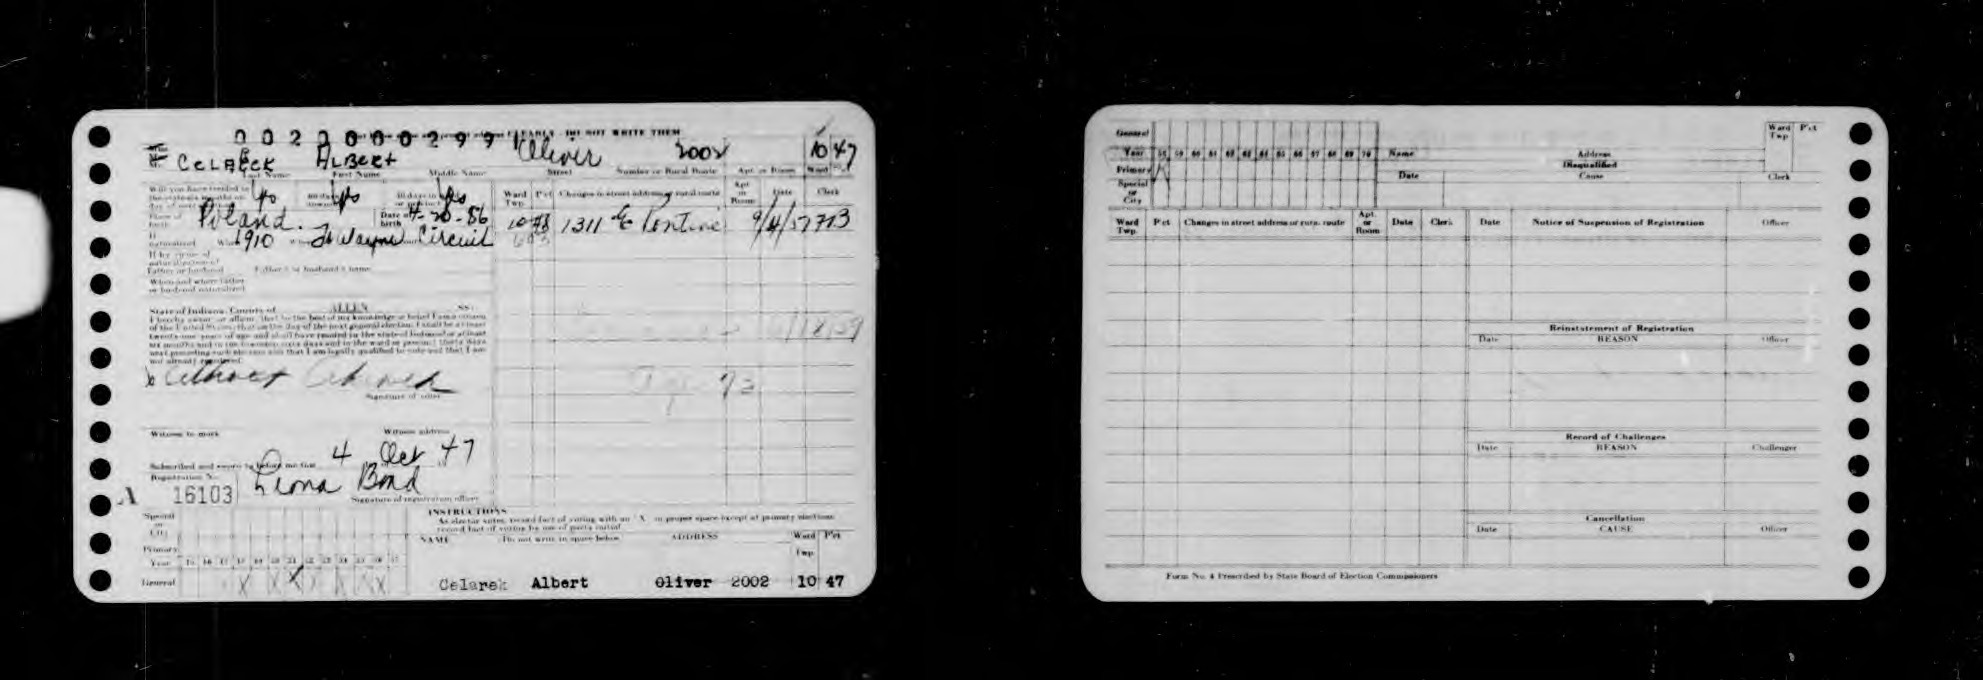 0020000299
CLEARLY - DO NOT WRITE THEM
CELAREK ALBERT Oliver 2002 10 47
Last Name First Name Middle Name Street Number or Rural Route Apt. or Room Ward Pct
yes yes yes
Ward Twp. Pct Changes in street address or rural route Apt. or Room Date Clerk
Place of birth Poland. Date of birth 4-20-86
10 1311 E Pontiac 9/4/57 773
If naturalized 1910 Ft Wayne Circuit
If by virtue of naturalization of Father or husband Father's or husband's name
When and where Father or husband naturalized
State of Indiana, County of ALLEN SS:
I hereby swear or affirm, that to the best of my knowledge or belief I am a citizen
of the United States; that on the day of the next general election, I shall be at least
twenty-one years of age and shall have resided in the state of Indiana for at least
six months and in the township sixty days and in the ward or precinct thirty days
next preceding such election and that I am legally qualified to vote and that I am
not already registered.
Albert Celarek
Signature of voter
Age 73
Witness to mark Witness address
Subscribed and sworn to before me this 4 Oct 47
Registration No.
A 16103 Leona Bond
Signature of registration officer
INSTRUCTIONS
As elector votes, record fact of voting with an "X" in proper space except at primary elections
record fact of voting by use of party initial
Special or City
Primary
NAME Do not write in space below ADDRESS Ward Twp. Pct
Year
General X X X X X X
Celarek Albert Oliver 2002 10 47
General
Year 58 59 60 61 62 63 64 65 66 67 68 69 70
Primary
Special or City
Name Address Ward Twp Pct
Disqualified
Date Cause Clerk
Ward Twp. Pct Changes in street address or rural route Apt. or Room Date Clerk
Date Notice of Suspension of Registration Officer
Reinstatement of Registration
Date REASON Officer
Record of Challenges
Date REASON Challenger
Cancellation
Date CAUSE Officer
Form No. 4 Prescribed by State Board of Election Commissioners